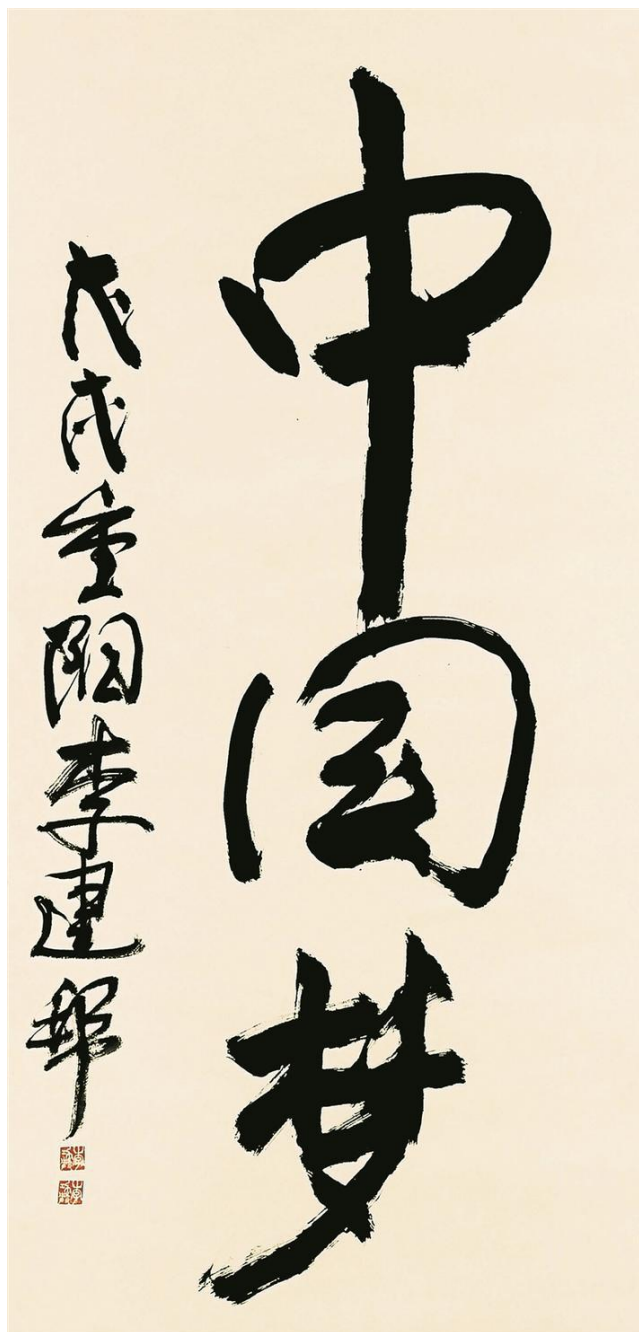 中国梦
戊戌重阳李建邦